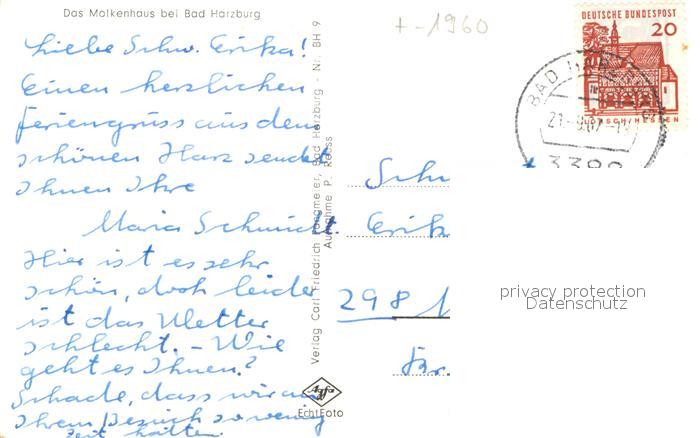 Das Molkenhaus bei Bad Harzburg
+-1960
Liebe Schw. Erika!
Einen herzlichen
Feriengruss aus dem
schönen Harz sendet
Ihnen Ihre
Maria Schmidt.
Hier ist es sehr
schön, doch leider
ist das Wetter
schlecht. – Wie
geht es Ihnen?
Schade, dass wir an
Ihrem Besuch so wenig
Zeit hatten.
Verlag Carl Friedrich Fangmeier, Bad Harzburg - Nr. BH 9
Aufnahme P. Reoss
Agfa
Echt Foto
DEUTSCHE BUNDESPOST
20
LORSCH/HESSEN
BAD
3388
Schw
Erika
2981
privacy protection
Datenschutz